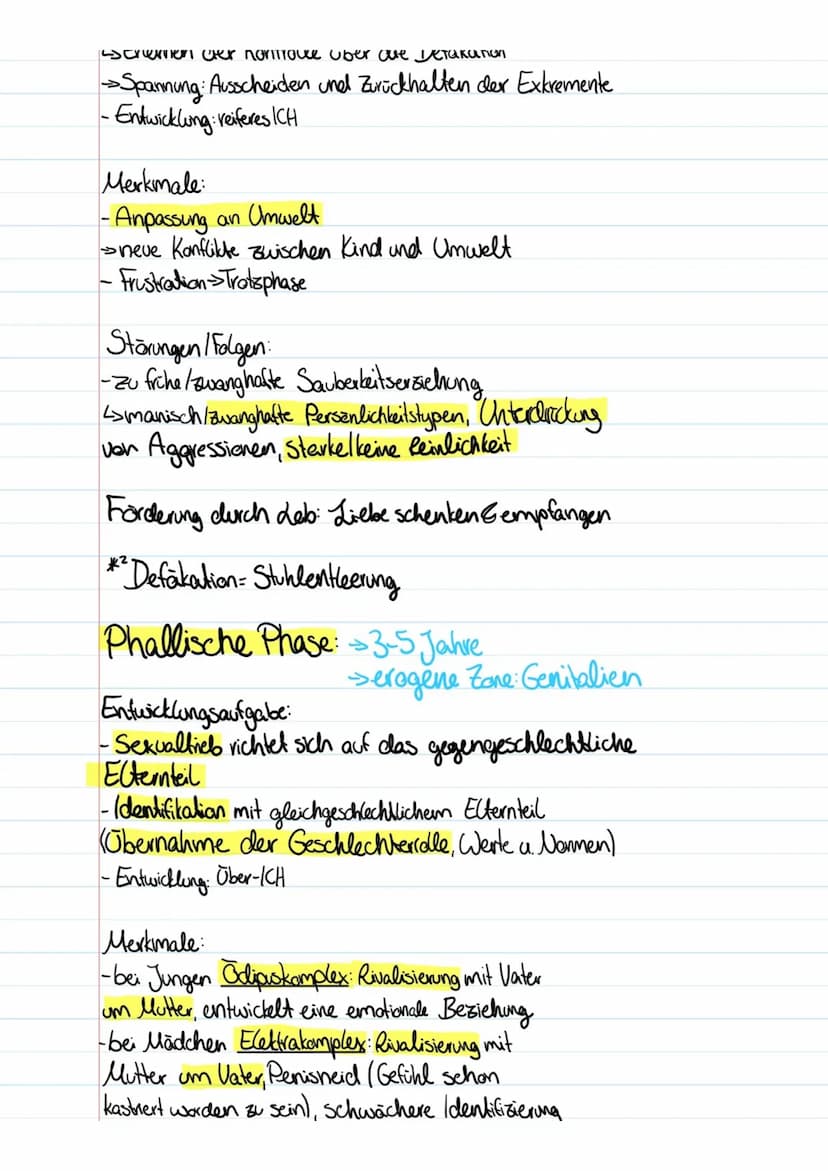 ↳ Erlernen der Kontrolle über die Defäkation
→ Spannung: Ausscheiden und Zurückhalten der Exkremente
- Entwicklung: reiferes ICH
Merkmale:
- Anpassung an Umwelt
→ neue Konflikte zwischen Kind und Umwelt
- Frustration → Trotzphase
Störungen/Folgen:
- zu frühe/zwanghafte Sauberkeitserziehung
↳ manisch/zwanghafte Persönlichkeitstypen, Unterdrückung
von Aggressionen, starke/keine Reinlichkeit
Förderung durch Leb: Liebe schenken & empfangen
*² Defäkation = Stuhlentleerung
Phallische Phase: → 3-5 Jahre
→ erogene Zone: Genitalien
Entwicklungsaufgabe:
- Sexualtrieb richtet sich auf das gegengeschlechtliche
Elternteil
- Identifikation mit gleichgeschlechtlichem Elternteil
(Übernahme der Geschlechterrolle, Werte u. Normen)
- Entwicklung: Über-ICH
Merkmale:
- bei Jungen Ödipuskomplex: Rivalisierung mit Vater
um Mutter, entwickelt eine emotionale Beziehung
- bei Mädchen Elektrakomplex: Rivalisierung mit
Mutter um Vater, Penisneid (Gefühl schon
kastriert worden zu sein), schwächere Identifizierung